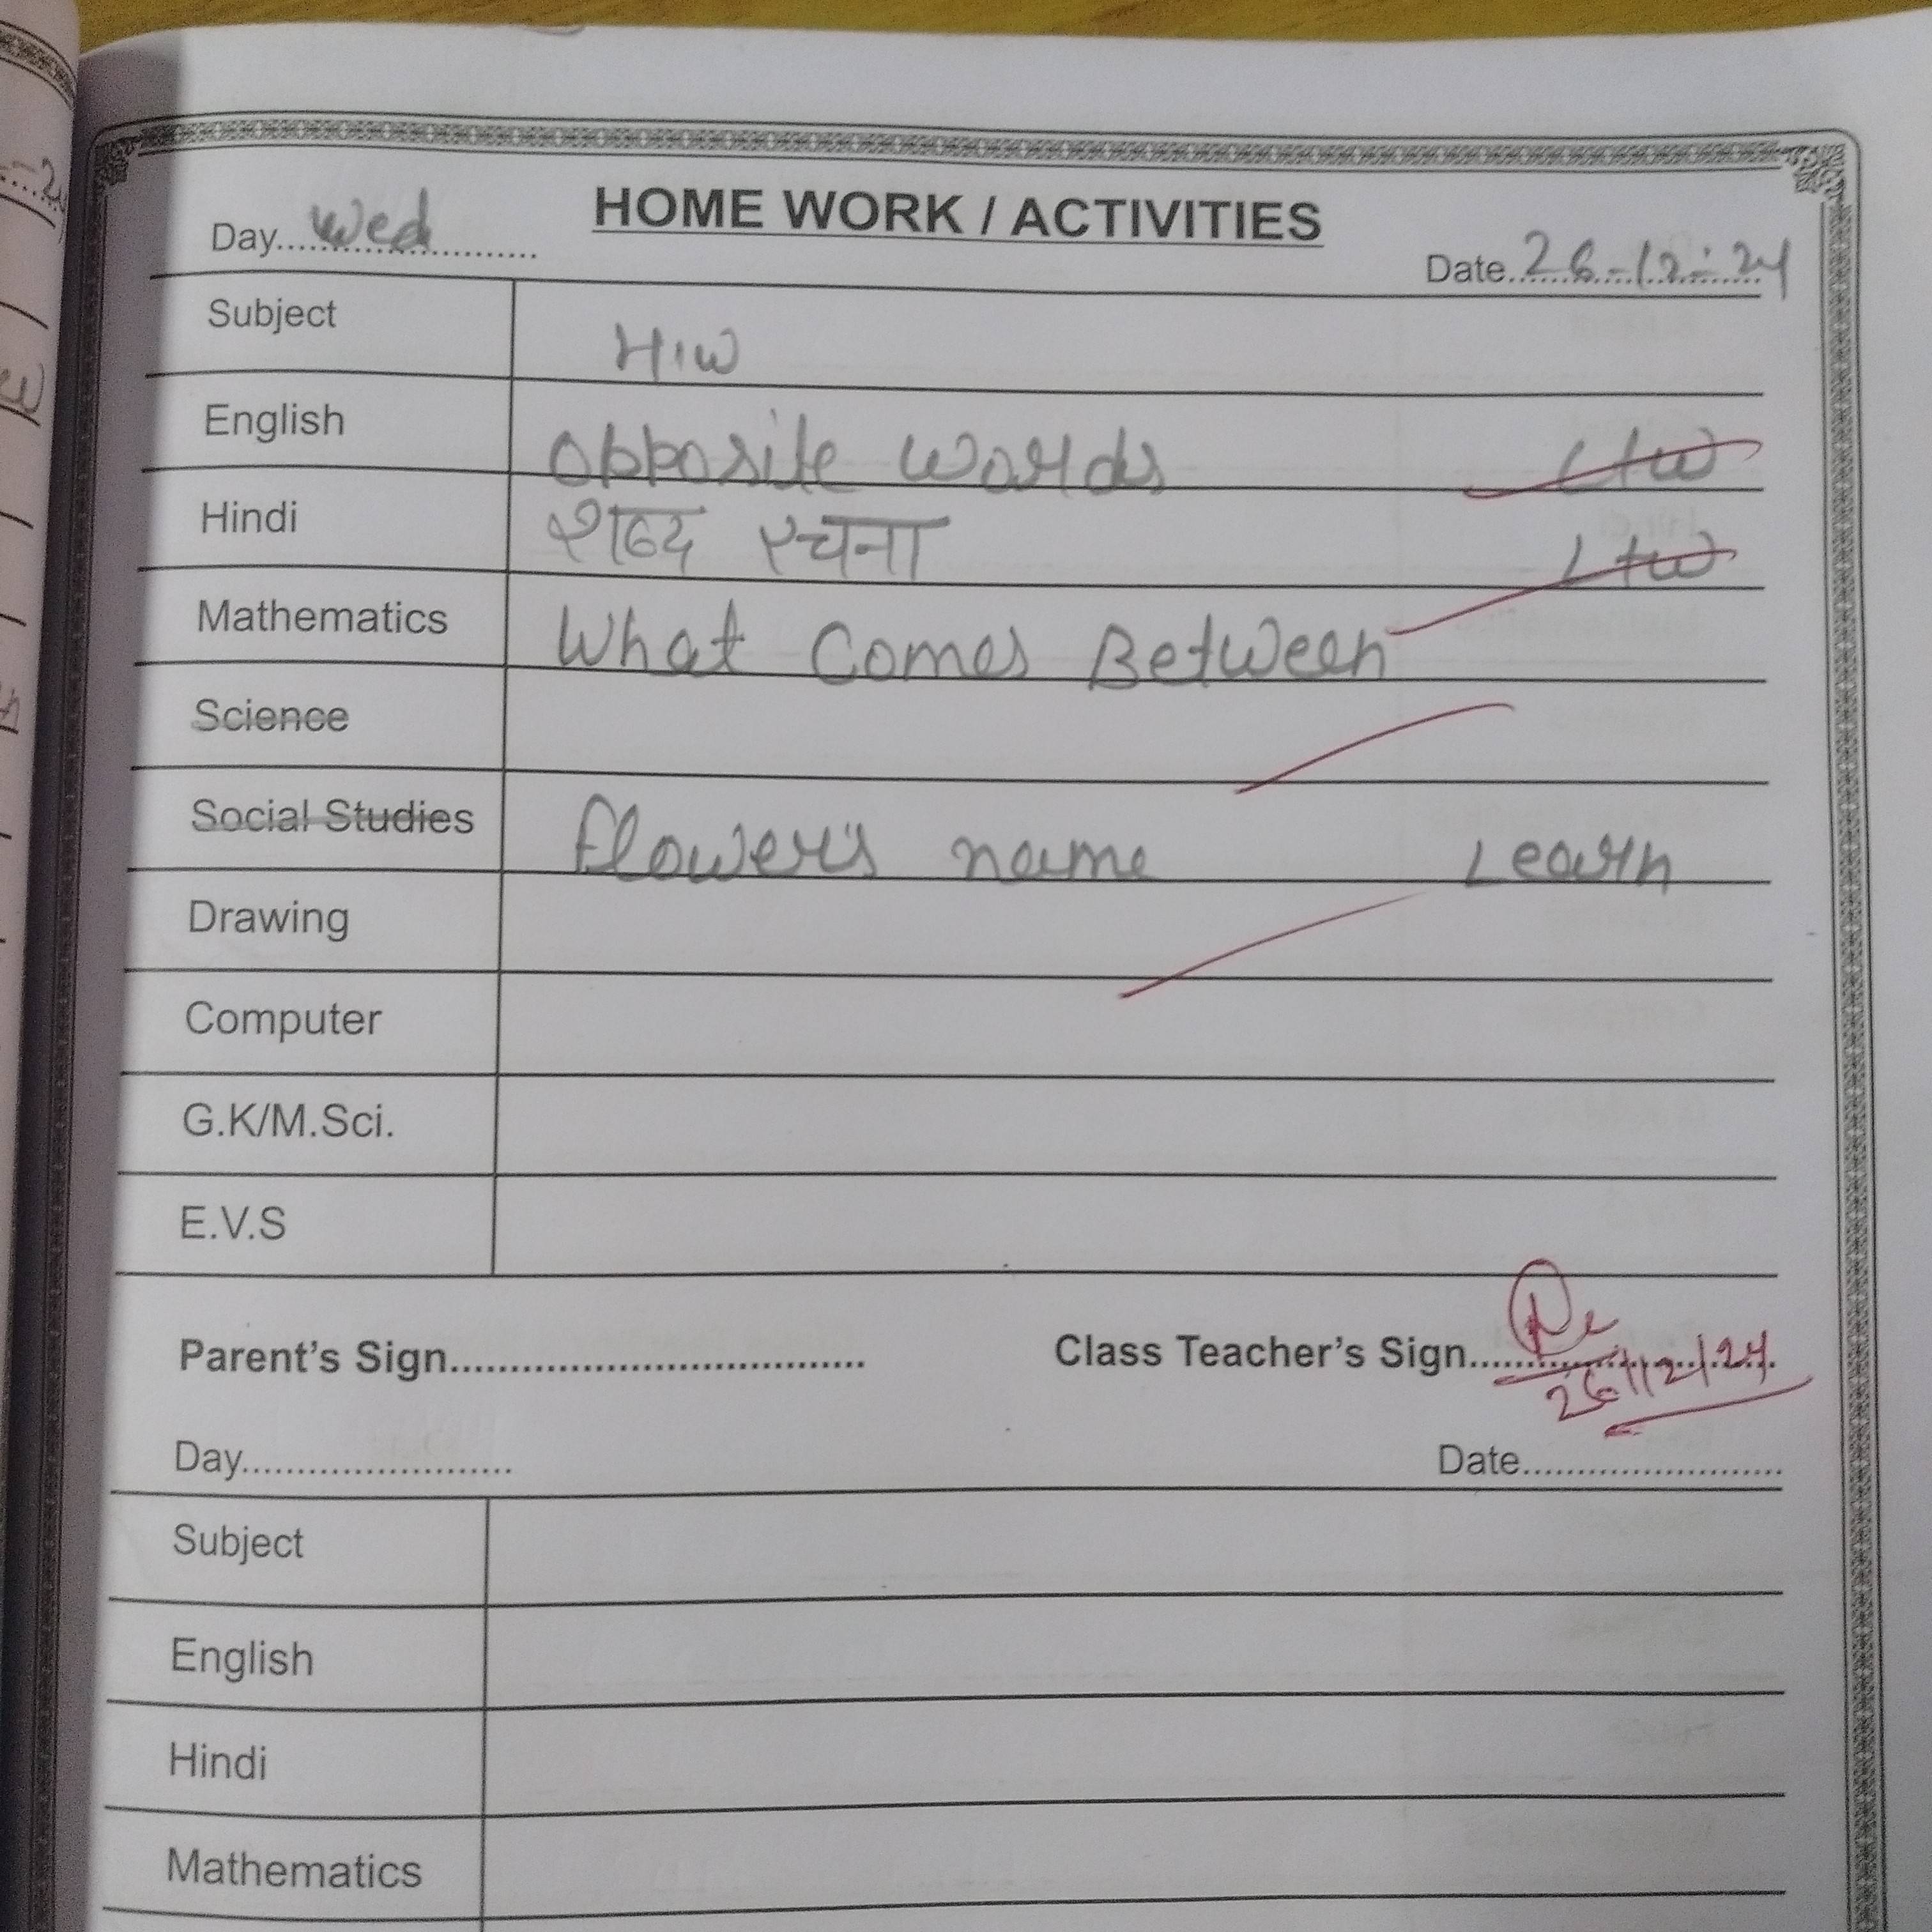 HOME WORK / ACTIVITIES
Day Wed
Date 26-12-24
Subject H.W
English Opposite Words L+W
Hindi शब्द रचना L+W
Mathematics What Comes Between
Science
Social Studies Flower's name Learn
Drawing
Computer
G.K/M.Sci.
E.V.S
Parent's Sign..................................
Class Teacher's Sign
26/12/24
Day.........................
Date........................
Subject
English
Hindi
Mathematics